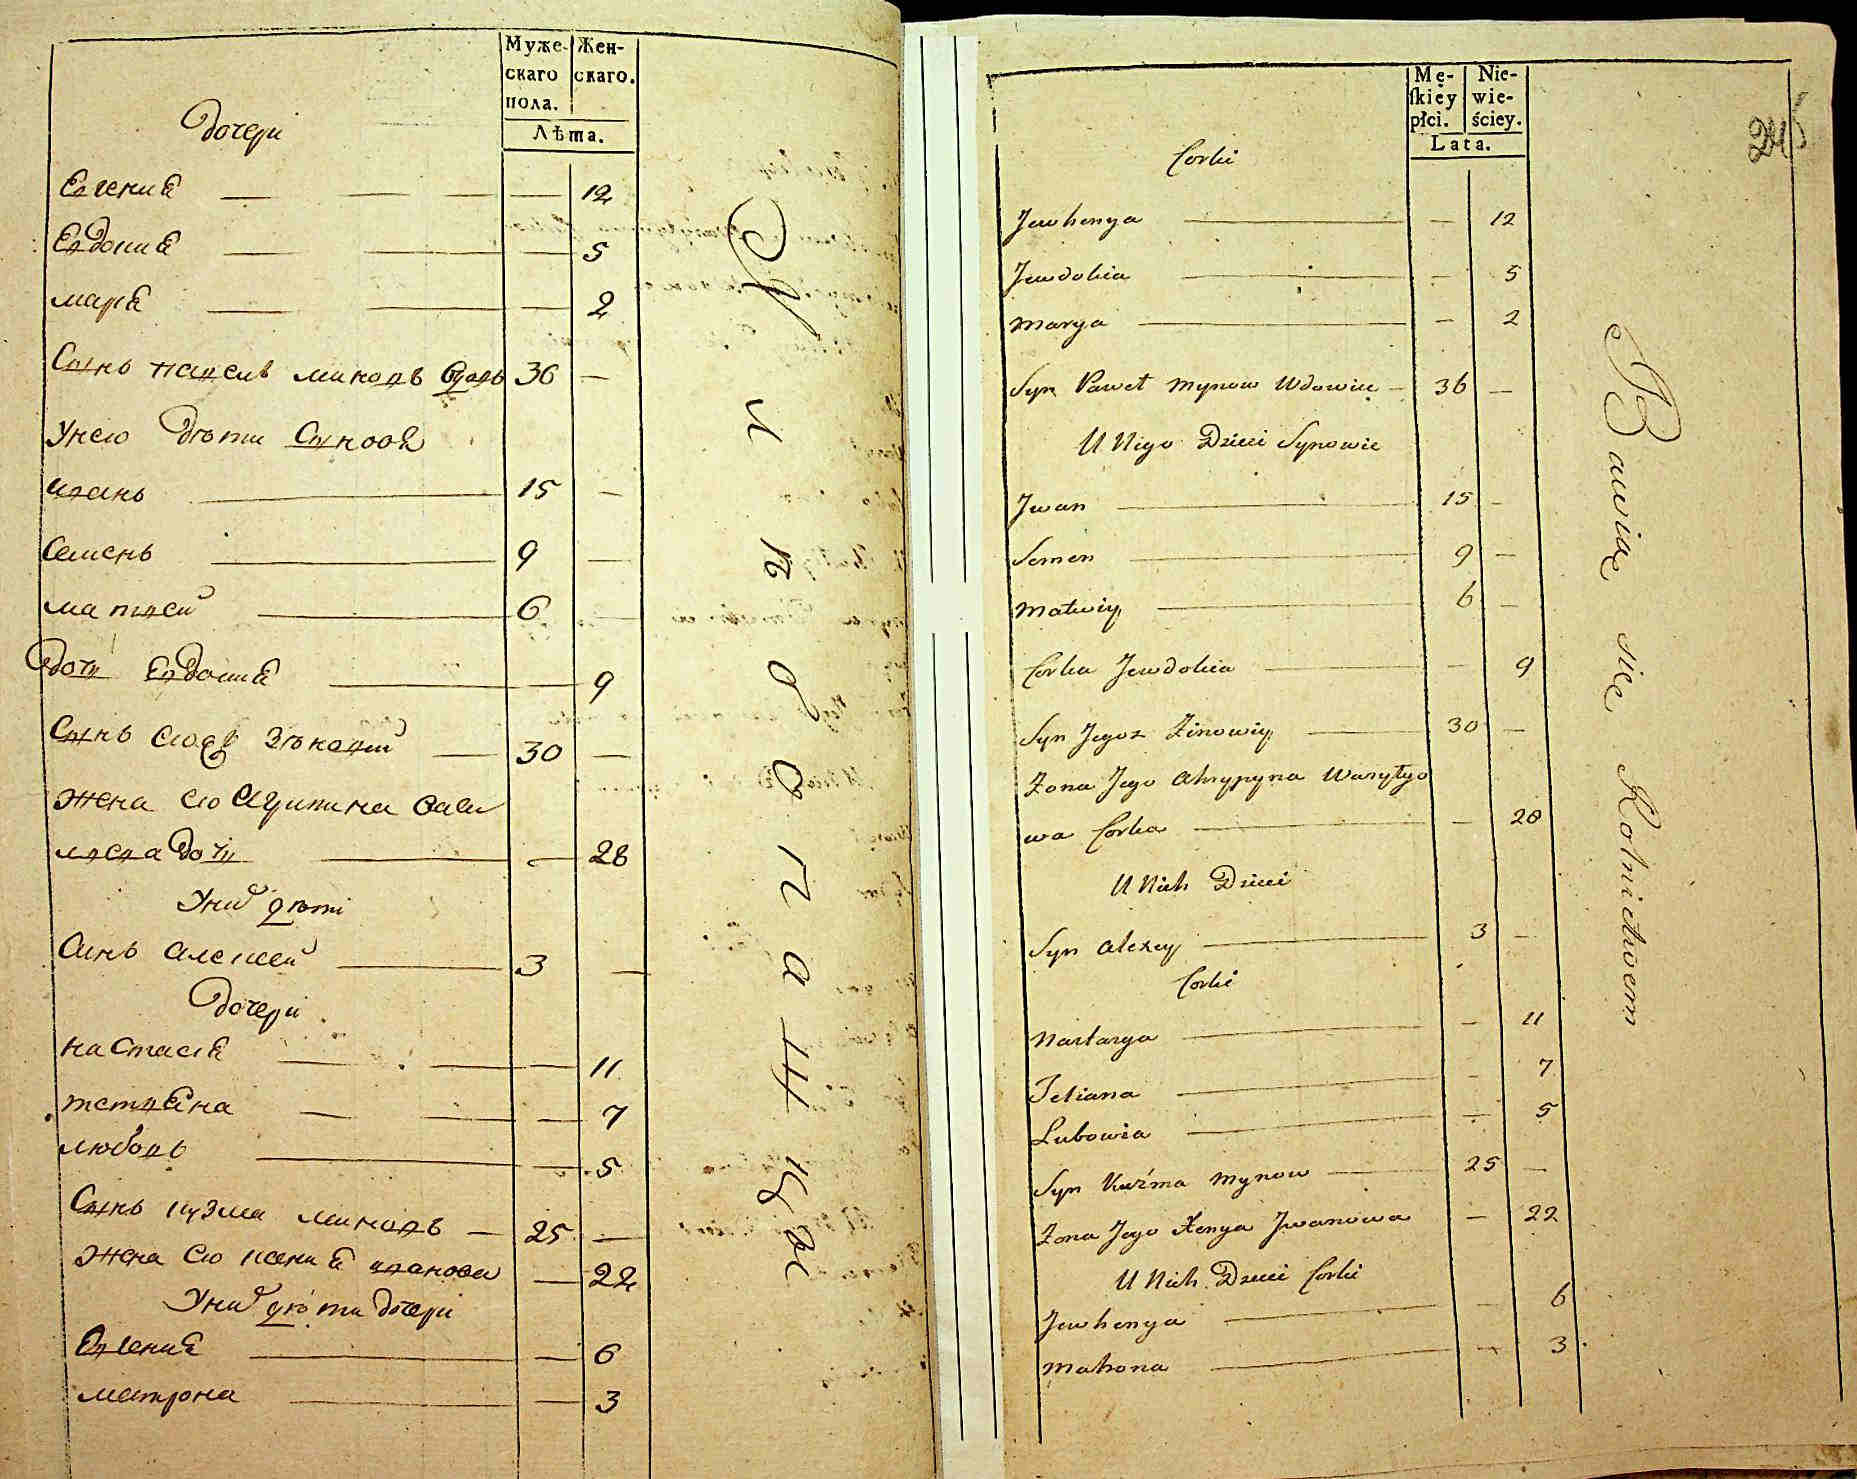 Муже- Жен-
скаго скаго.
пола.
Лѣта.
Дочери
Евгения — — 12
Евдокия — — 5
Маря — — 2
Сынъ Павелъ Миновъ Вдовъ 36 —
У него дѣти Сыновя
Иванъ — 15 —
Семенъ — 9 —
Матвей — 6 —
Дочъ Евдокия — — 9
Сынъ Зѣновий — 30 —
Жена его Агрипина Васи
лева Дочъ — — 28
У них дѣти
Синъ Алексей — 3 —
Дочери
Настася — — 11
Тетяна — — 7
Любовь — — 5
Сынъ Кузма Миновъ — 25 —
Жена его Ксения Иванова — 22
У них дѣти дочери
Евгения — — 6
Матрона — — 3
Mę- Nie-
skiey wie-
płci. ściey.
Lata.
245
Corki
Jewhenya — — 12
Jewdokia — — 5
Marya — — 2
Syn Paweł Mynow Wdowiec — 36 —
U Niego Dzieci Synowie
Jwan — 15 —
Semen — 9 —
Matwiy — 6 —
Corka Jewdokia — — 9
Syn Jegoż Zinowiy — 30 —
Żona Jego Ahrypyna Wasylyo
wa Corka — — 28
U Nich Dzieci
Syn Alexey — 3 —
Corki
Nastasya — — 11
Tetiana — — 7
Lubowia — — 5
Syn Kuźma Mynow — 25 —
Żona Jego Xenya Jwanowa — 22
U Nich Dzieci Corki
Jewhenya — — 6
Matrona — — 3
Bawią się Rolnictwem